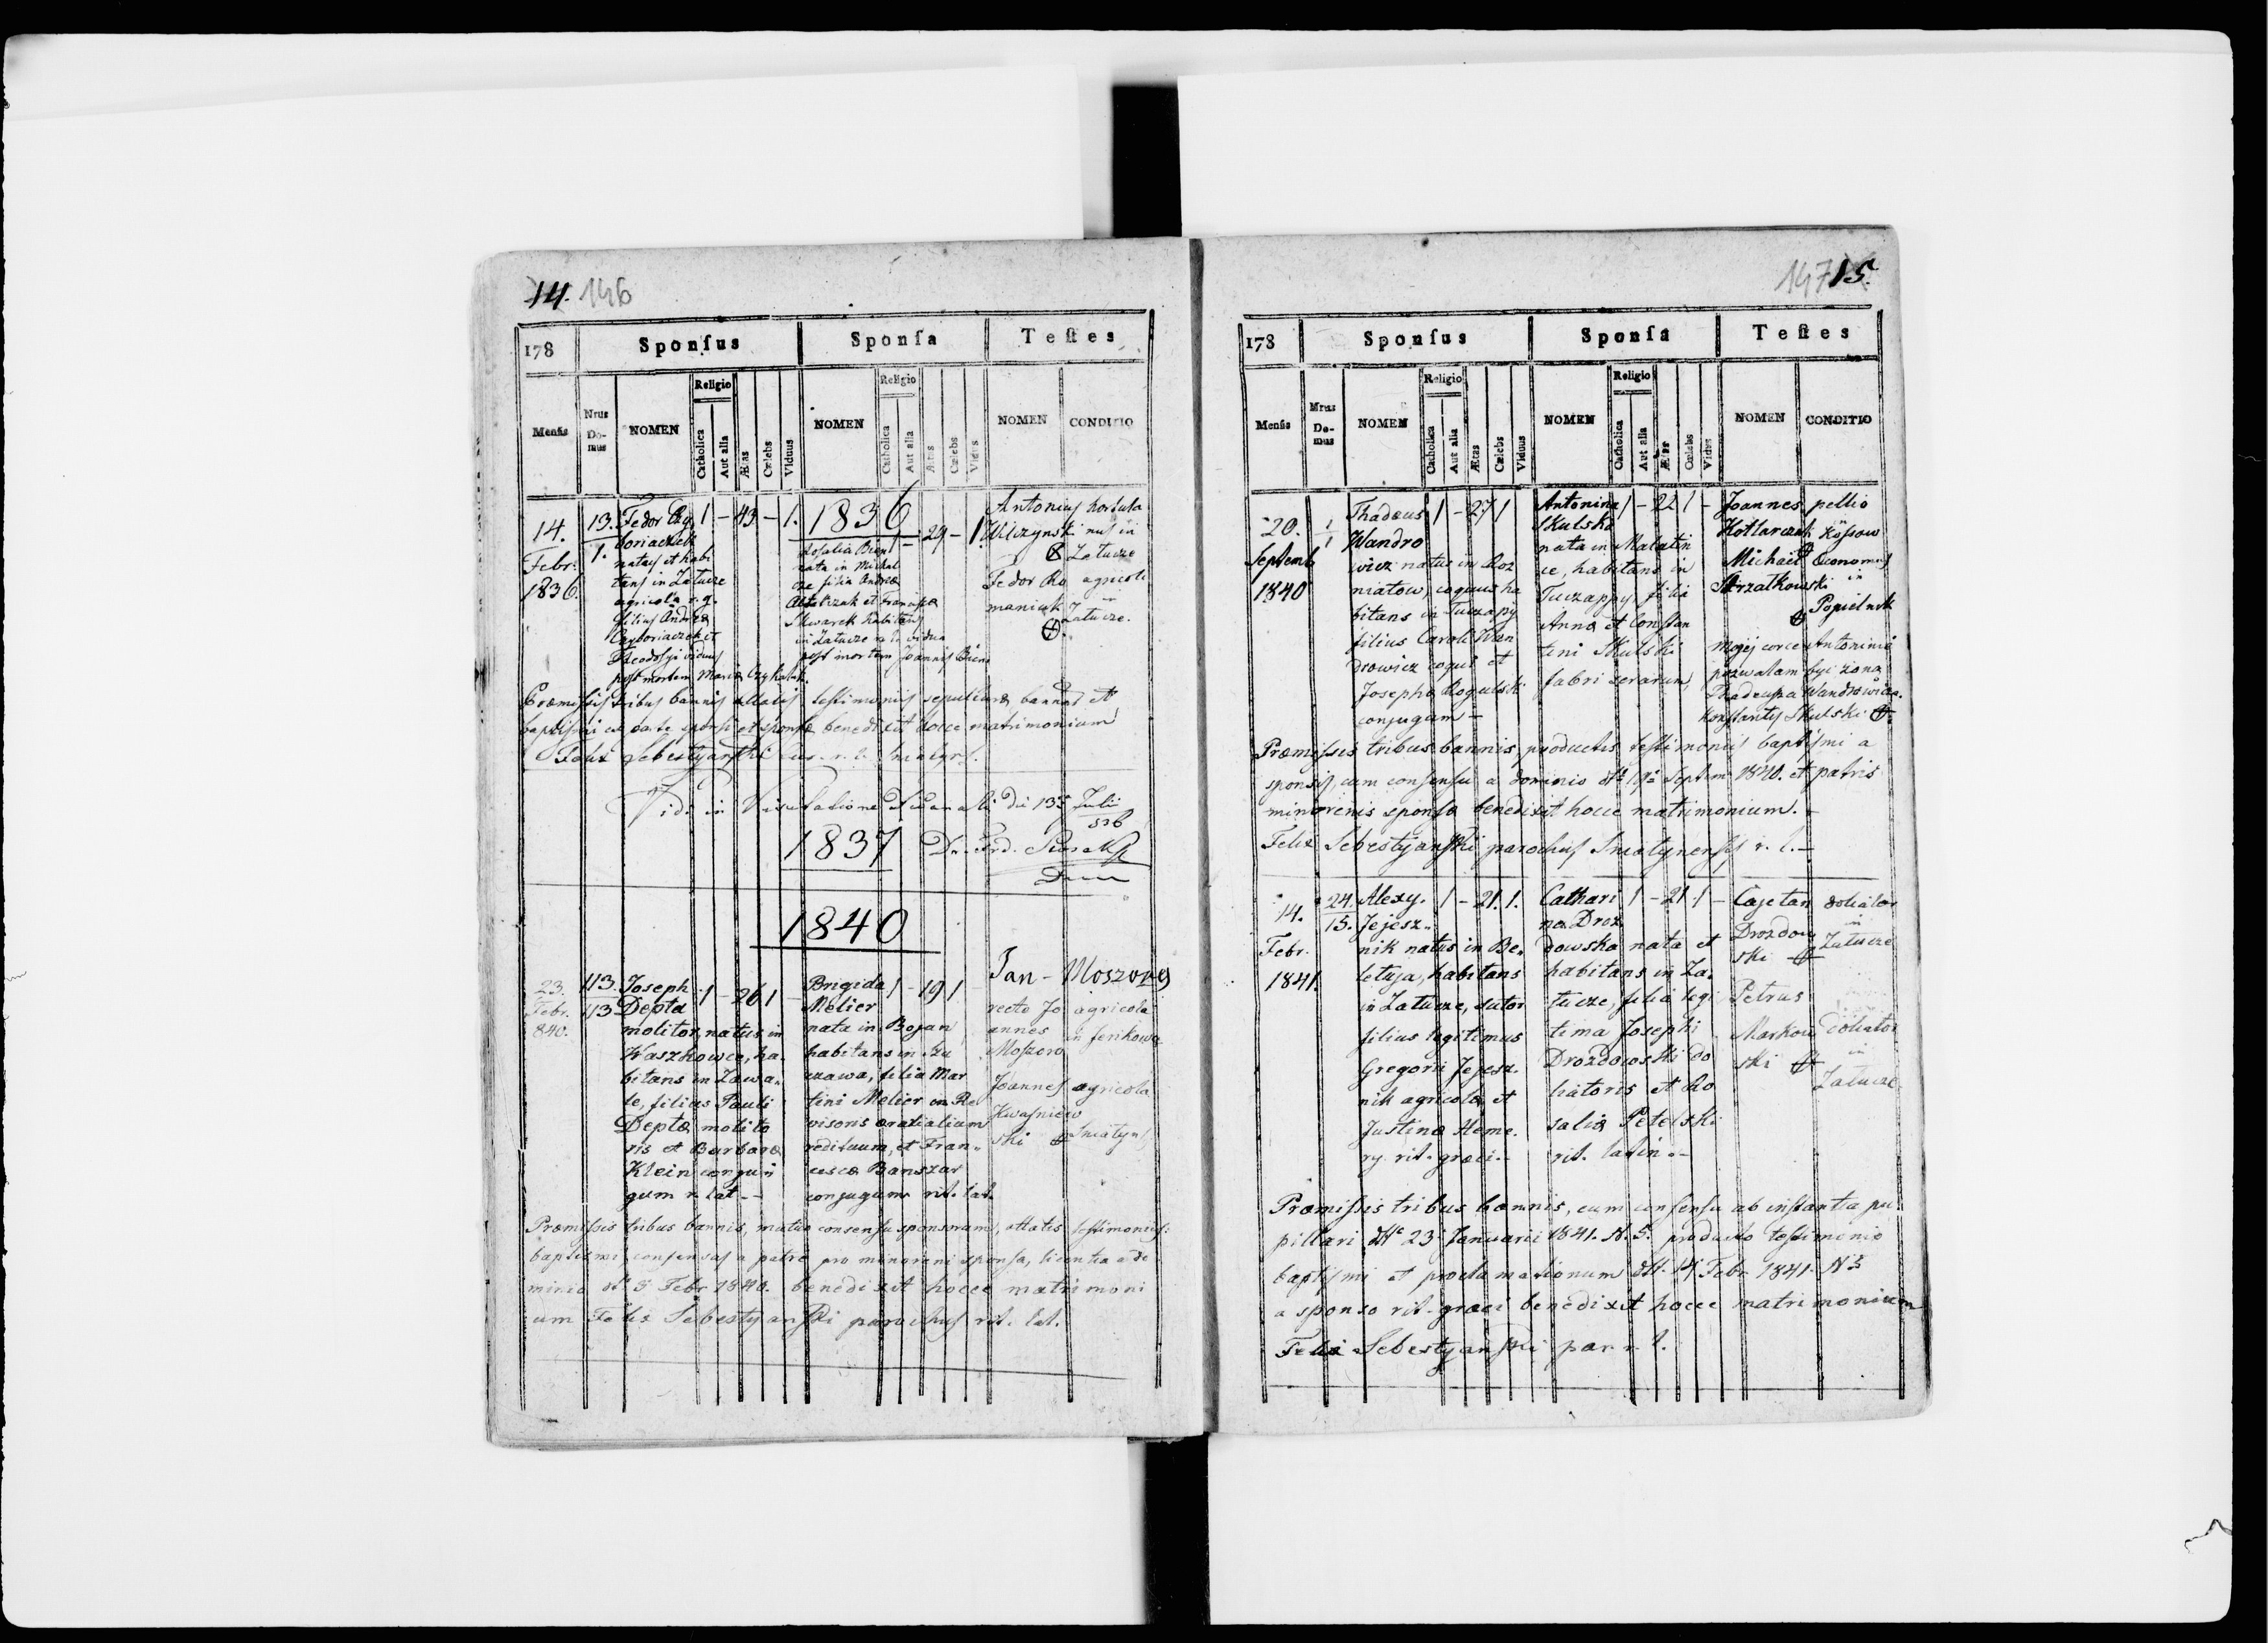 14. 146
178 Sponſus Sponſa Teſtes
Menſis Nrus Do-mus NOMEN Religio Catholica Aut alia Ætas Cœlebs Viduus NOMEN Religio Catholica Aut alia Ætas Cœlebs Vidua NOMEN CONDITIO
1836
14. Febr. 1836.
13. 1.
Fedor Cy
boriaczek
natus et habi
tans in Zatucze
agricola r. g.
filius Andreæ
Cyboriaczek et
Theodosyi viduus
post mortem Mariæ
1 - 43 - 1.
Rosalia Bien
nata in Michal
cze filia Andreæ
et Franciscæ
Skwarek habitans
in Zatucze vidua
post mortem Joannis Bien
1 - 29 - 1.
Antonius
Wilczynski in
Zatucze
Fedor Ro agricola
maniuk in
Zatucze.
Præmissis tribus bannis allatis testimoniis sepulturæ bannos et
baptismi ex parte sponsi et sponsæ benedixit hocce matrimonium
Felix Sebestyanski
Vidi in Visitatione Decanali die 13 Julii
836
1837
1840
23. Febr. 840.
113. 113
Joseph
Depta
molitor, natus in
Waszkowce, ha-
bitans in Zawa-
le, filius Pauli
Deptæ molito
ris et Barbaræ
Klein conju
gum r. lat. -
1 - 26 1
Brigida
Melier
nata in Bojan
habitans in
czawa, filia Mar
tini Melier
visoris
redituum, et Fran-
ciscæ Banszar
conjugum rit. lat.
1 - 19 1
Jan - Moszoro
recte Jo agricola
annes in
Moszoro
Joannes agricola
Kwasniew
ski Sniatyn
Præmissis tribus bannis, mutuo consensu sponsorum, allatis testimoniis
baptismi, consensus a patre pro minoreni sponsa, licentia a do
minio dto 5 Febr. 1840. benedixit hocce matrimoni
um Felix Sebestyanski parochus rit. lat.
147 15.
178 Sponſus Sponſa Teſtes
Menſis Nrus Do-mus NOMEN Religio Catholica Aut alia Ætas Cœlebs Viduus NOMEN Religio Catholica Aut alia Ætas Cœlebs Vidua NOMEN CONDITIO
20. Septemb 1840
1 1
Thadæus
Wandro
wicz natus in Roz
niatow, coquus ha
bitans in Tuczapy
filius Caroli Wan
drowicz coqui et
Josephæ Rogulski
conjugum -
1 - 27 1
Antonina
Skulska
nata in Malatin
ce, habitans in
Tuczapy, filia
Annæ et Constan
tini Skulski
fabri serarum,
1 - 22 1 -
Joannes pellio
Kotlarczuk Kossow
Michael Œconomus
Strzałkowski in
Popielnik
Mojej corce Antoninie
pozwalam być żoną
Thadeusza Wandrowicza.
Konstanty Skulski
Præmissis tribus bannis, productis testimoniis baptismi a
sponsis, cum consensu a dominio dto 19 Septem 1840. et patris
minorenis sponsæ benedixit hocce matrimonium. -
Felix Sebestyanski parochus Sniatynensis r. l. -
14. Febr. 1841.
24. 15.
Alexy.
Jejesz-
nik natus in Be-
leluja, habitans
in Zatucze, sutor
filius legitimus
Gregorii Jejesz-
nik agricolæ et
Justinæ Heme-
ry rit. græci. -
1 - 21. 1.
Cathari
na Droz
dowska nata et
habitans in Za-
tucze, filia legi
tima Josephi
Drozdowski do
liatoris et Ro
saliæ Petelski
rit. latin. -
1 - 21 1 -
Cajetan doliator
Drozdow in
ski Zatucze
Petrus
Markow doliator
ski in
Zatucze
Præmissis tribus bannis, cum consensu ab instantia pu-
pillari dto 23 Januarii 1841. N. 5. producto testimonio
baptismi et proclamationum dtt. 14 Febr 1841. N 5
a sponso rit. græci benedixit hocce matrimonium
Felix Sebestyanski par. r. l.